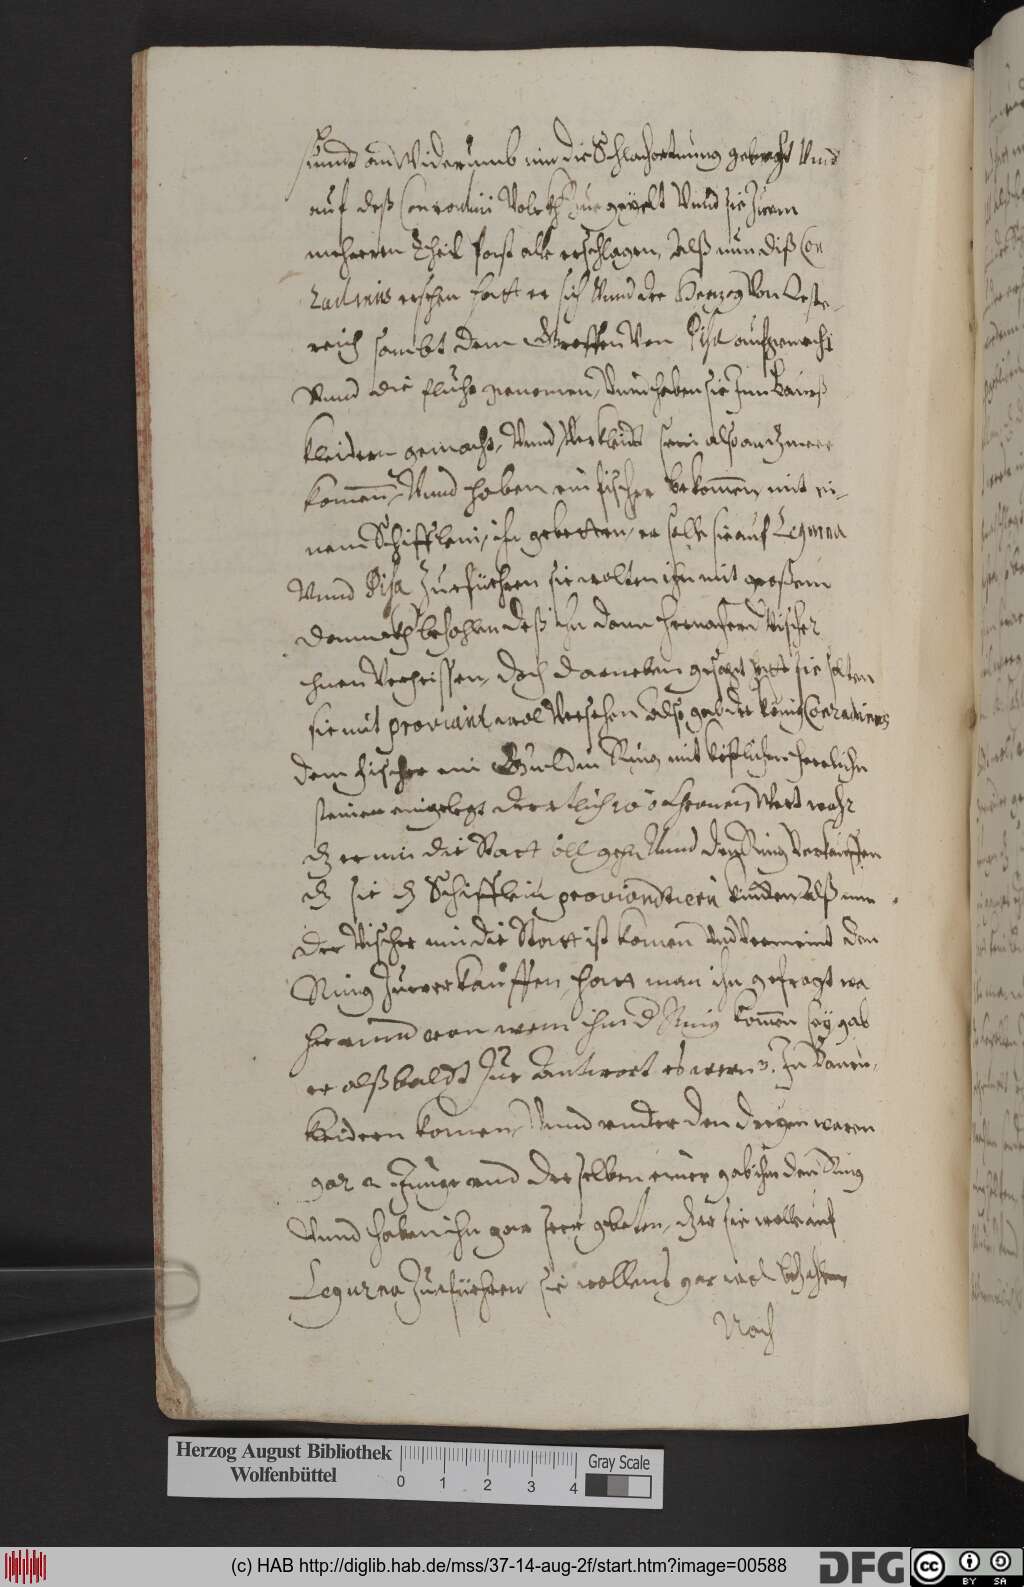 stundt an Widerumb inn die Schlachortnung gebracht Vnnd
auf deß Conradini Volckh Zue geeylt Vnnd sie Zuem
mehrern Theil fast alle erschlagen, Alß nun diß Con
radinus ersehen hatt er sich Vnnd der Herzog Von Oste-
reich sambt dem Graffen Von Pisa aufgemacht
Vnnd die flucht genomen, Vnnd haben sie Inn Baurß
kleidern gemacht, Vnnd Verkleidt sein also an Zmeer
komen, Vnnd haben ein fischer bekomen mit ei-
nem Schifflein, ihn gebetten, er solle sie auf Legurna
Vnnd Pisa Zuefüehren sie wolten ihn mit grossem
Dannckh besohlen deß ihn dann hernach der Vischer
ihnen Verheissen, doch darneben gesagt sie solten
sie mit proviant wol Versehen also gab der könig Conradinus
dem Fischer ein Guldin Ring mit köstlichen herrlichn
steinen eingelegt der etlich 100 Chronen Wert wahr
dz er inn die Statt soll gehn Vnnd den Ring Verkauffen
dz sie dz Schifflein proviandtieren kindten alß nun
der Vischer inn die Statt ist komen Vnd Vermeint den
Ring Zuverkauffen, hatt man ihn gefragt wa
her vnnd von wem ihm d Ring komen sey gab
er alßbaldt Zur Antwort es wern 3. In Bauren,
kleidern komen, Vnnd vnder den dreyen waren
gar 2 Junge vnd derselben einer gab ihm den Ring
Vnnd haben ihn gar seer gebeten, dz er sie wolle auf
Legurna Zuefüehren sie wollens gar wol bezahlen
Nach
Herzog August Bibliothek
Wolfenbüttel
0 1 2 3 4
Gray Scale
(c) HAB http://diglib.hab.de/mss/37-14-aug-2f/start.htm?image=00588
DFG
cc BY SA